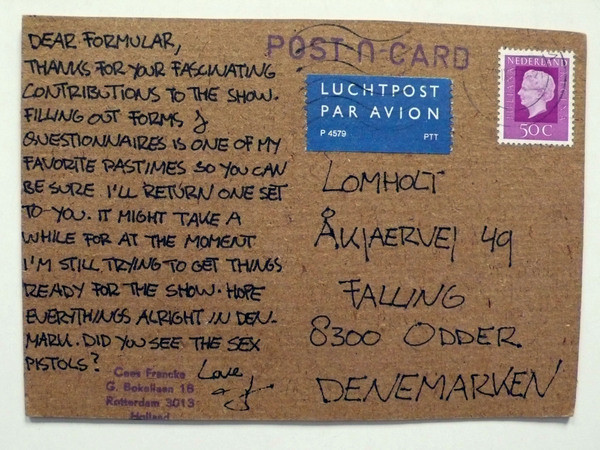 DEAR FORMULAR,
THANKS FOR YOUR FASCINATING
CONTRIBUTIONS TO THE SHOW.
FILLING OUT FORMS &
QUESTIONNAIRES IS ONE OF MY
FAVORITE PASTIMES SO YOU CAN
BE SURE I'LL RETURN ONE SET
TO YOU. IT MIGHT TAKE A
WHILE FOR AT THE MOMENT
I'M STILL TRYING TO GET THINGS
READY FOR THE SHOW. HOPE
EVERYTHINGS ALRIGHT IN DEN-
MARK. DID YOU SEE THE SEX
PISTOLS?
Love
Cees Francke
G. Bokellaan 18
Rotterdam 3013
Holland
POST-N-CARD
LUCHTPOST
PAR AVION
P 4579 PTT
NEDERLAND
50C
LOMHOLT
ÅKJAERVEJ 49
FALLING
8300 ODDER
DENEMARKEN